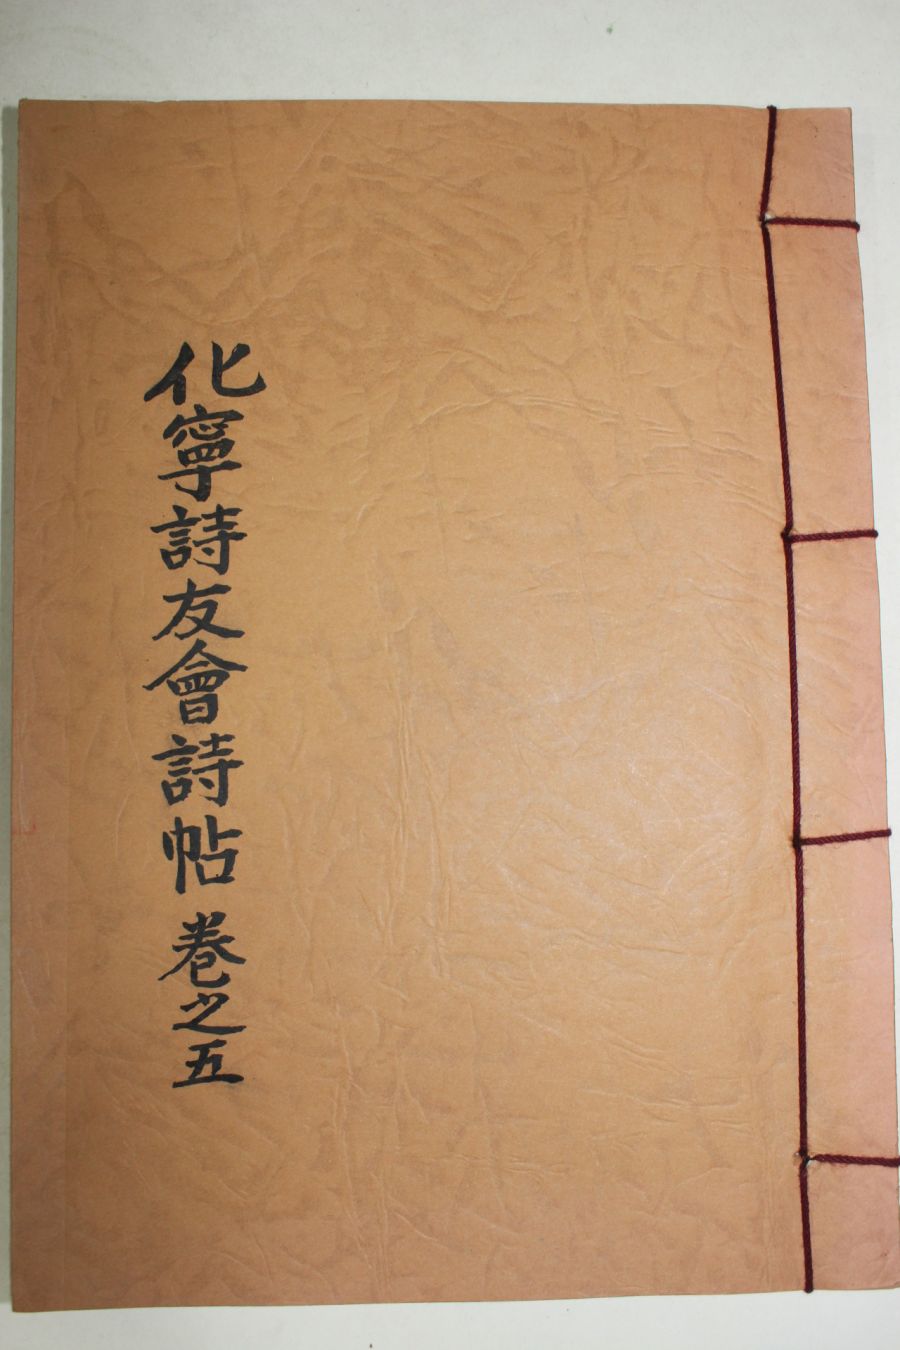 化寧詩友會詩帖 卷之五